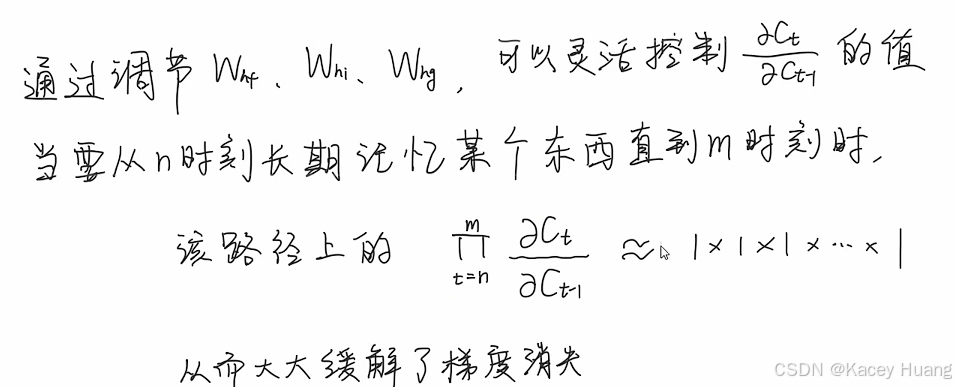 通过调节 W_hf、W_hi、W_hg, 可以灵活控制 ∂C_t/∂C_{t-1} 的值
当要从n时刻长期记忆某个东西直到m时刻时,
该路径上的 ∏_{t=n}^{m} ∂C_t/∂C_{t-1} ≈ 1×1×1×…×1
从而大大缓解了梯度消失
CSDN @Kacey Huang